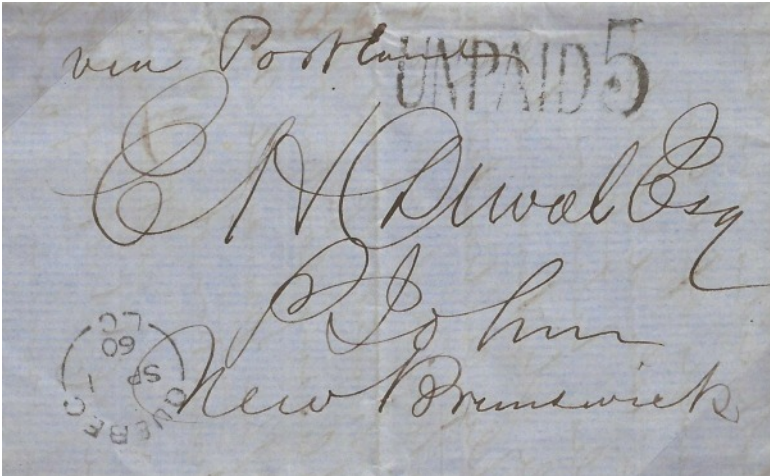 via Portland UNPAID 5
E H Duval Esq
St John
New Brunswick
QUEBEC L.C
SP 1
60